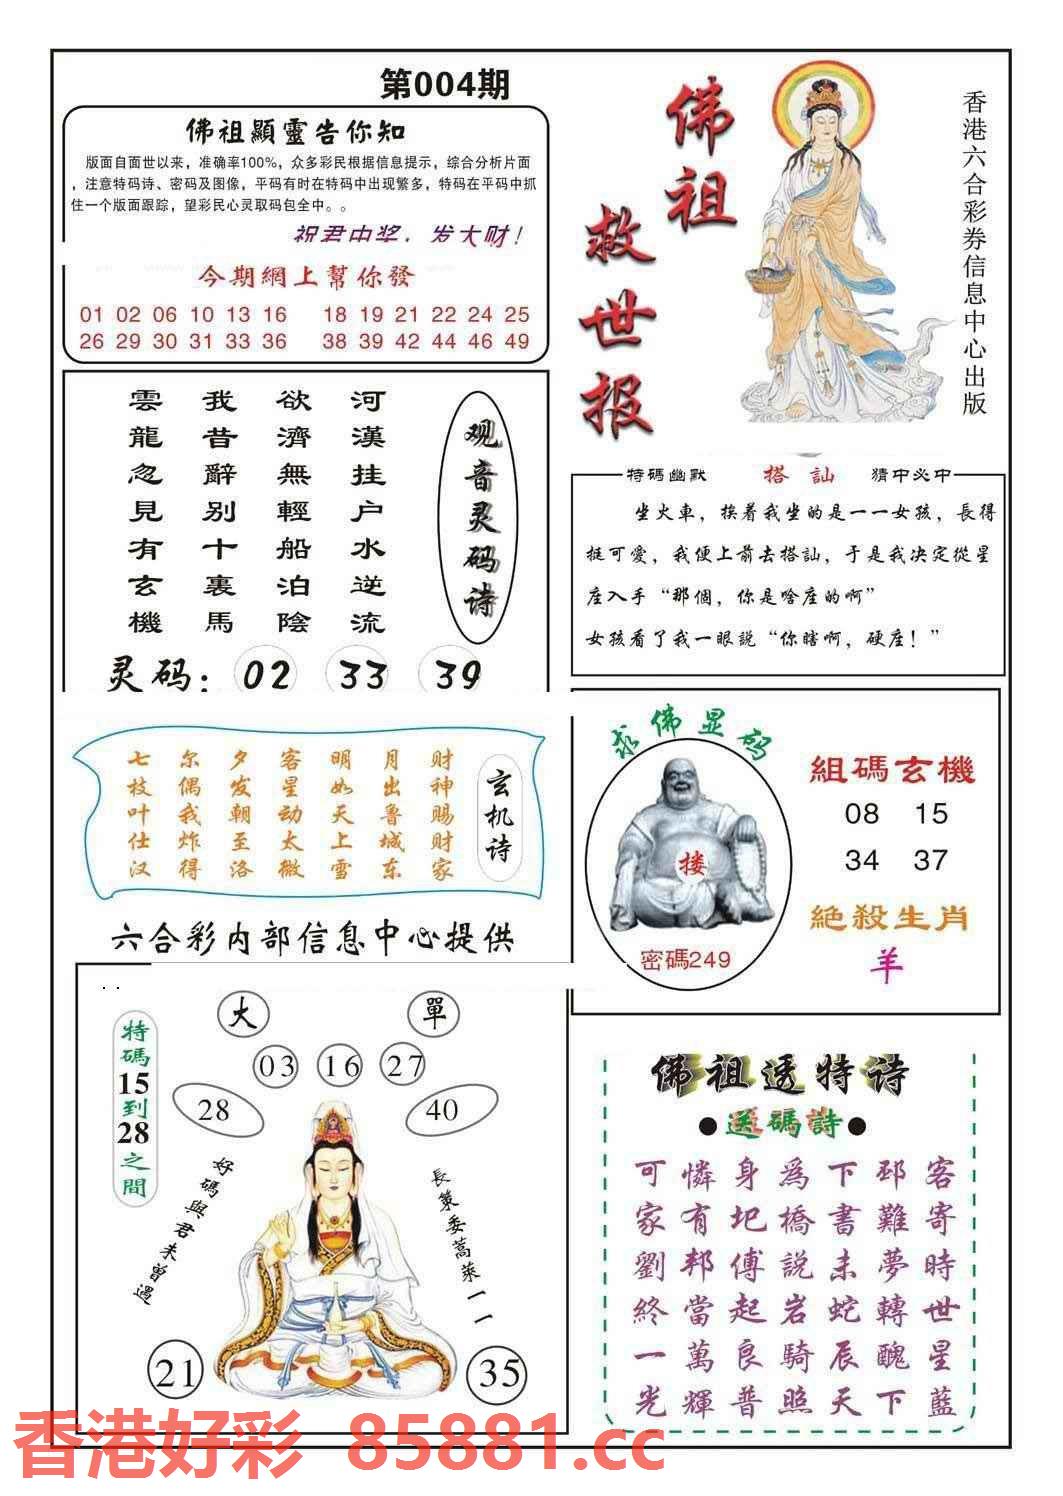 第004期
佛祖顯靈告你知
版面自面世以来，准确率100%，众多彩民根据信息提示，综合分析片面
，注意特码诗、密码及图像，平码有时在特码中出现繁多，特码在平码中抓
住一个版面跟踪，望彩民心灵取码包全中。。
祝君中奖，发大财！
今期網上幫你發
01 02 06 10 13 16 18 19 21 22 24 25
26 29 30 31 33 36 38 39 42 44 46 49
佛祖
救世报
香港六合彩券信息中心出版
观音灵码诗
河漢挂户水逆流
欲濟無輕船泊陰
我昔辭别十裏馬
雲龍忽見有玄機
灵码：02 33 39
特碼幽默 搭訕 猜中必中
坐火車，挨着我坐的是一一女孩，長得
挺可愛，我便上前去搭訕，于是我决定從星
座入手“那個，你是啥座的啊”
女孩看了我一眼説“你瞎啊，硬座！”
玄机诗
七尔夕客明月财
枝偶发星如出神
叶我朝动天鲁赐
仕炸至太上城财
汉得洛微雪东家
六合彩内部信息中心提供
求佛显码
搂
密碼249
組碼玄機
08 15
34 37
絶殺生肖
羊
大 單
03 16 27
28 40
特碼15到28之間
好碼與君未曾遇
長策委蒿萊一一
21 35
佛祖透特诗
●送碼詩●
可憐身爲下邳客
家有圯橋書難寄
劉邦傅説未夢時
終當起岩蛇轉世
一萬良騎辰醜星
光輝普照天下藍
香港好彩 85881.cc